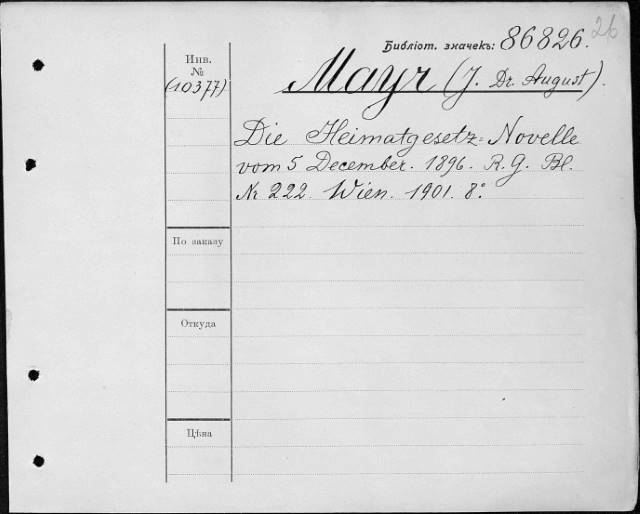 26
Библіот. значекъ: 86826.
Инв.
№
(10377)
Mayr (J. Dr. August).
Die Heimatgesetz=Novelle
vom 5 December. 1896. R. G. Bl.
Nr 222. Wien. 1901. 8°.
По заказу
Откуда
Цѣна